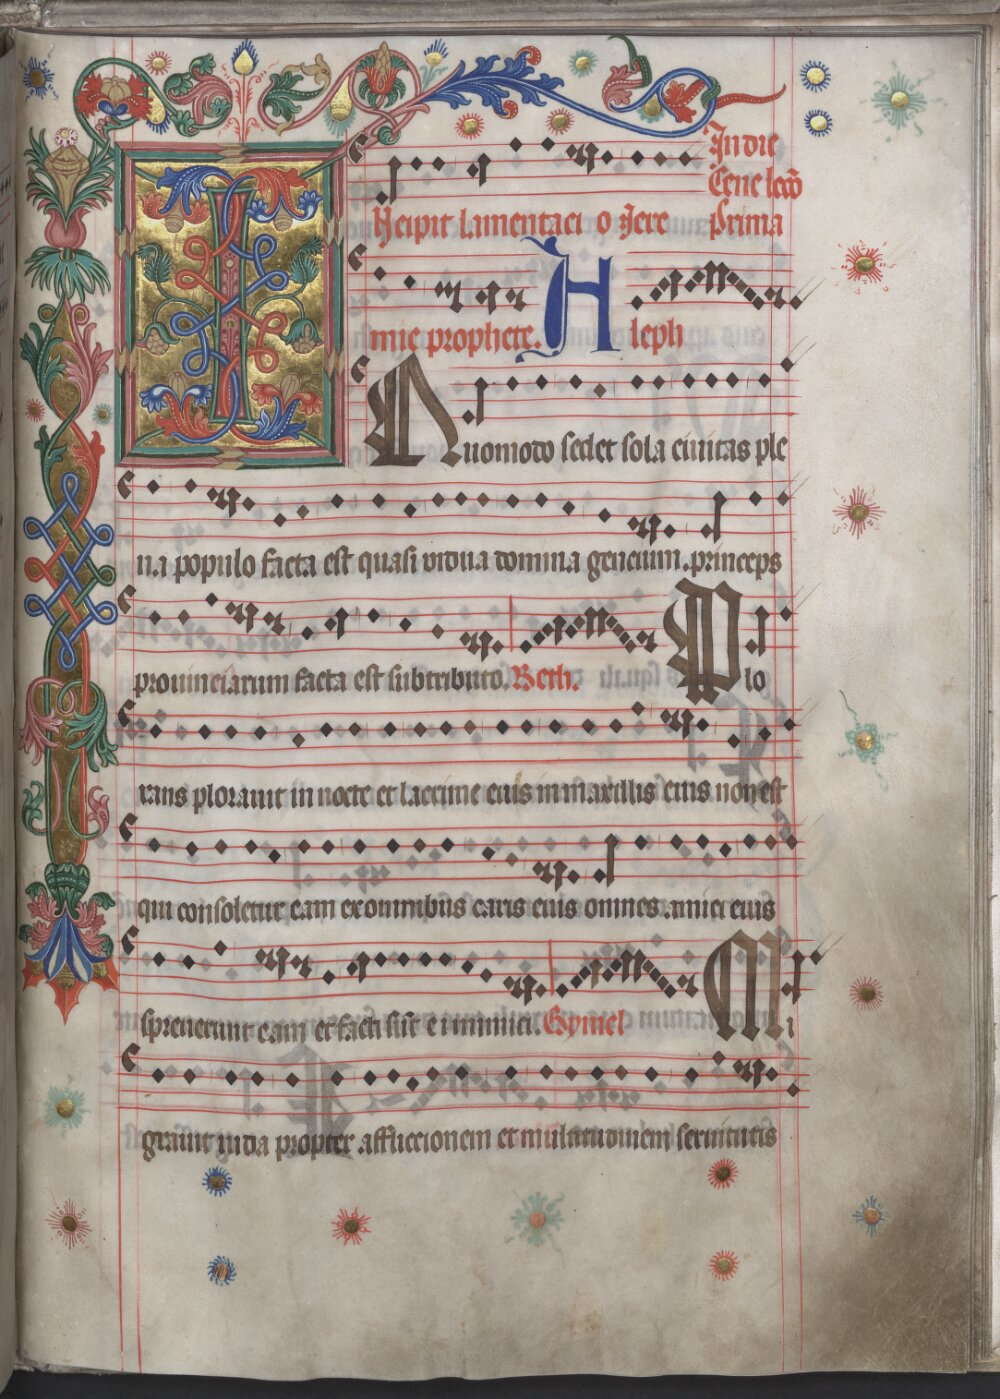 In die
Cene lcō
Prima
INcipit lamentaci o Jere
mie prophete. Aleph
Quomodo sedet sola civitas ple
na populo facta est quasi vidua domina gencium. princeps
provinciarum facta est sub tributo. Beth. Plo
rans ploravit in nocte et lacrime eius in maxillis eius non est
qui consoletur eam ex omnibus caris eius omnes amici eius
spreverunt eam et facti sūt ei inimici. Gymel Mi
gravit iuda propter afflicionem et multitudinem servitutis